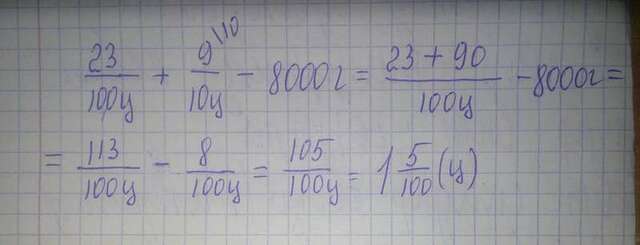 23/100ц + 9\10/10ц - 8000г = 23 + 90/100ц - 8000г =
= 113/100ц - 8/100ц = 105/100ц = 1 5/100 (ц)